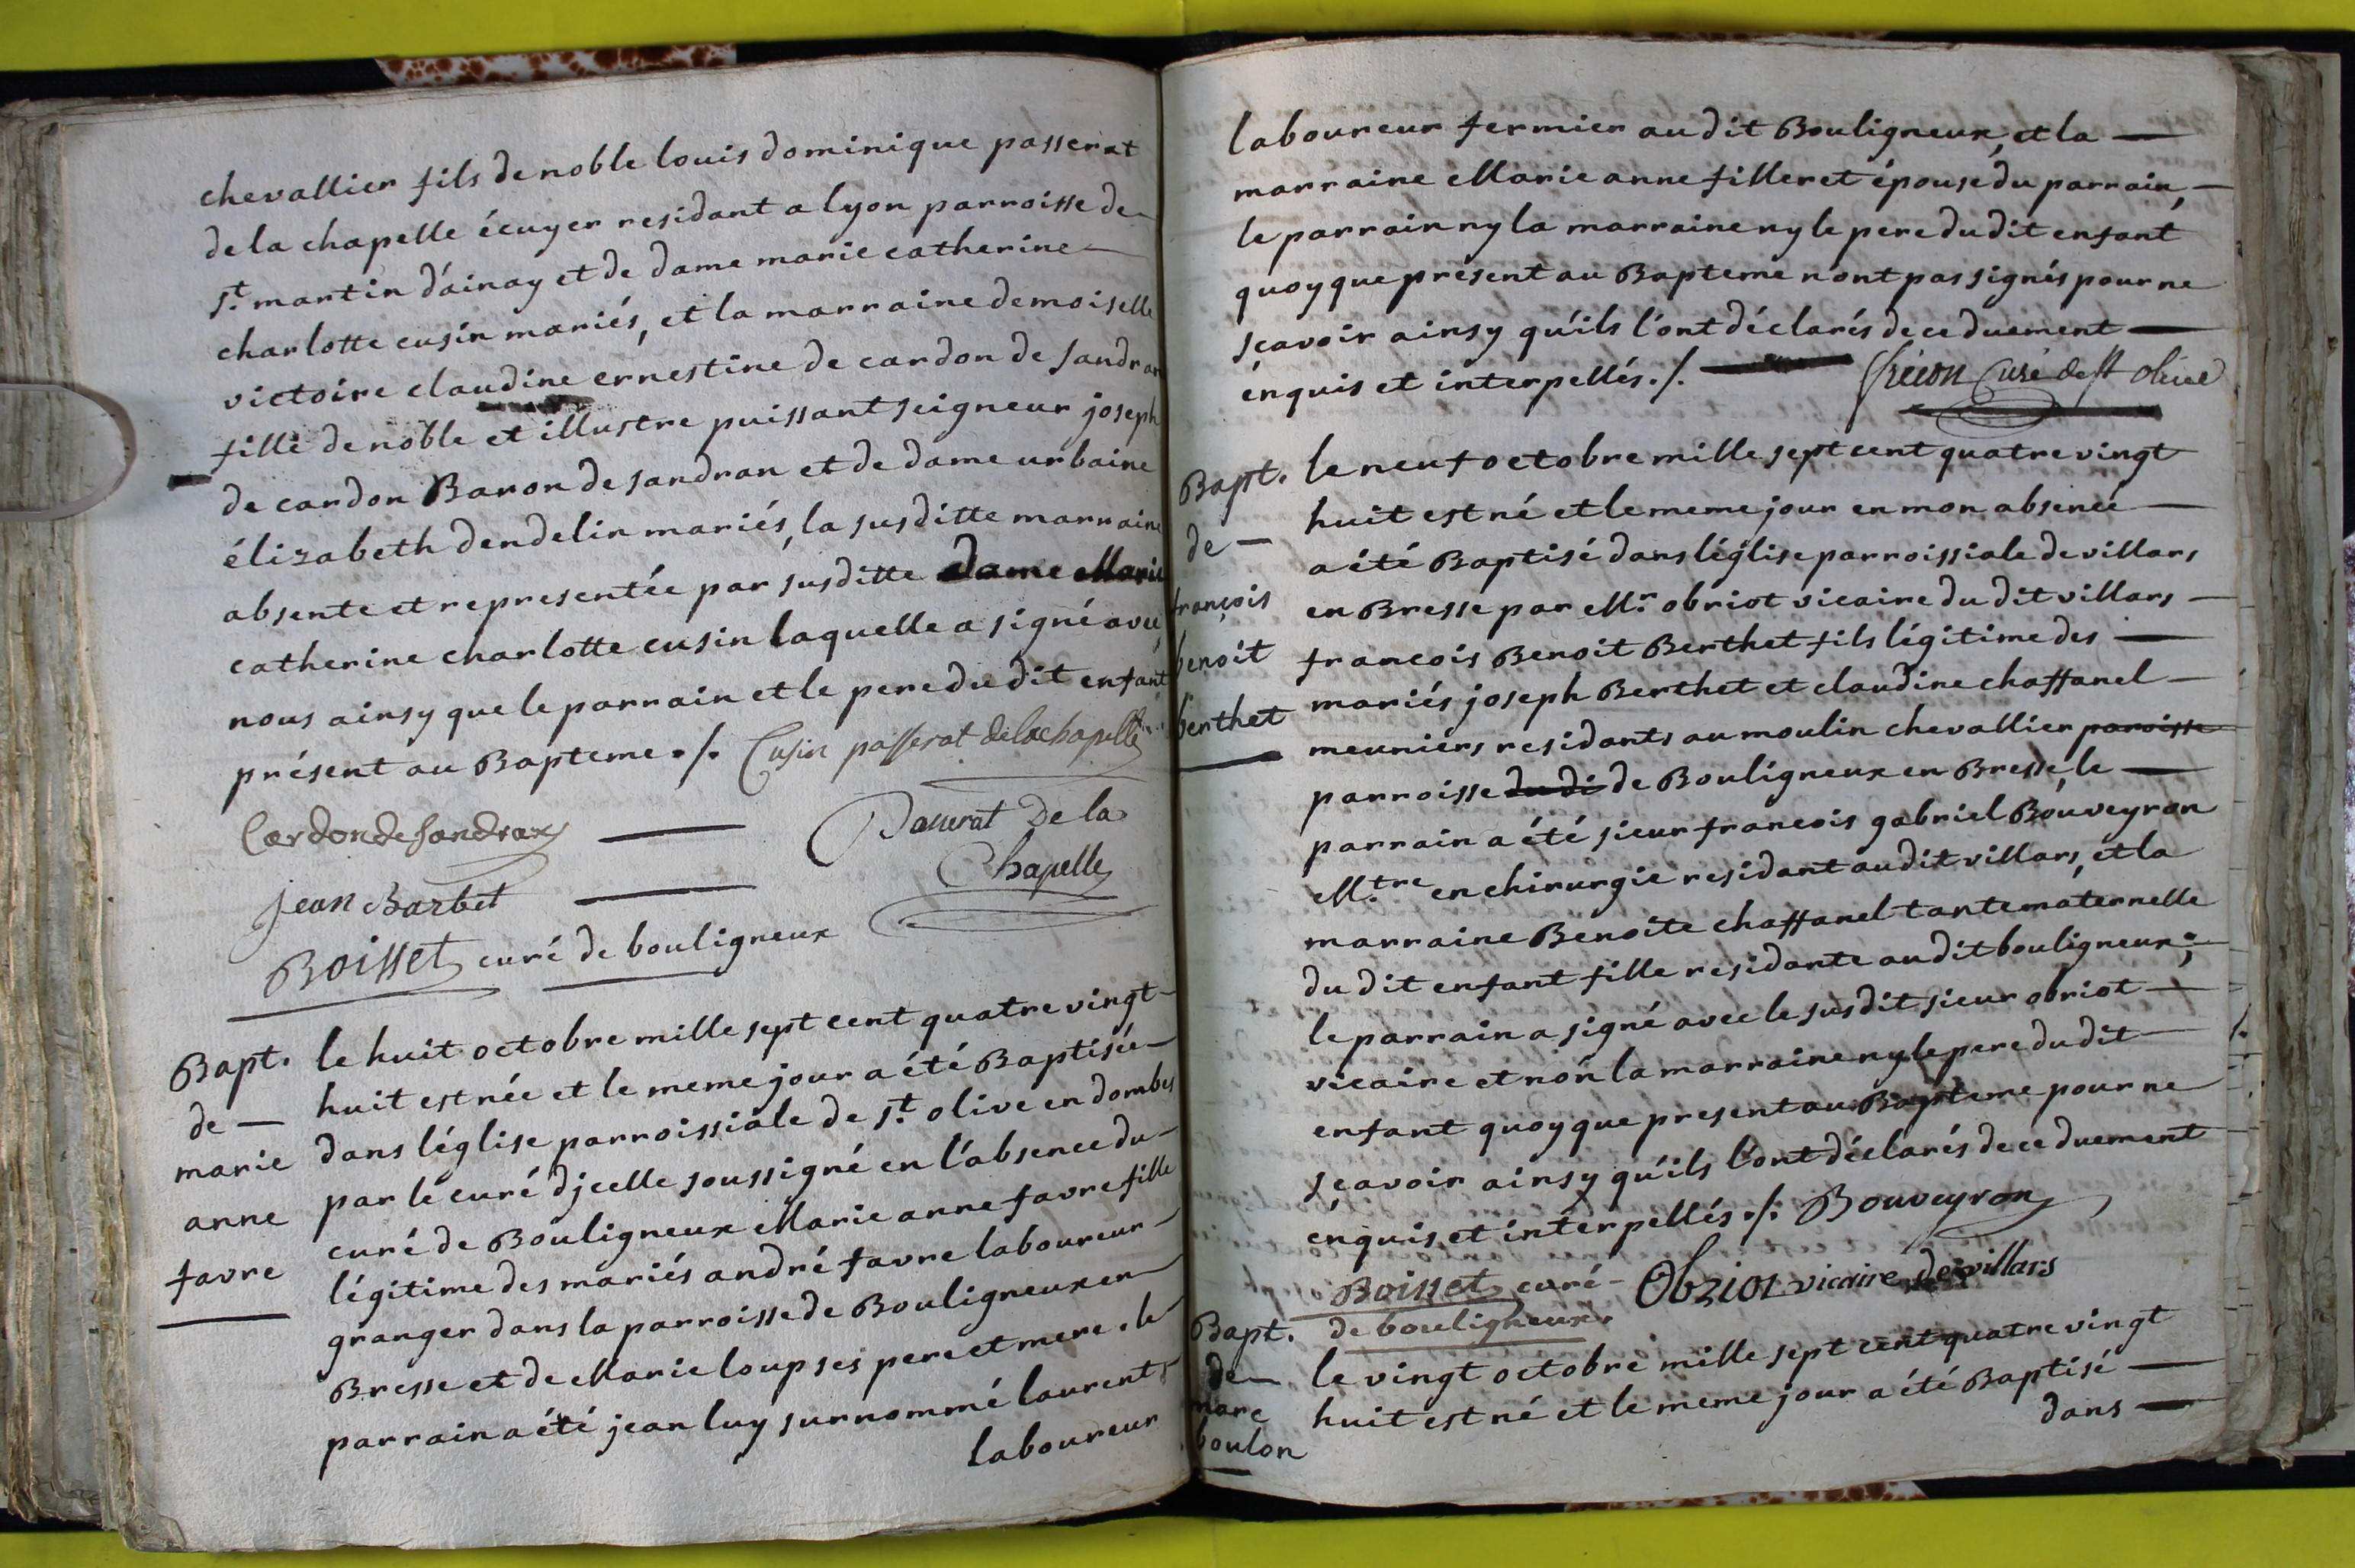 chevallier fils de noble louis dominique passerat
de la chapelle écuyer residant a lyon parroisse de
st. martin d'ainay et de dame marie catherine
charlotte cusin mariés, et la marraine demoiselle
victoire claudine ernestine de cardon de sandran
fille de noble et illustre puissant seigneur joseph
de cardon Baron de sandran et de dame urbaine
élizabeth dendelin mariés, la susditte marraine
absente et representée par susditte dame Marie
catherine charlotte cusin laquelle a signé avec
nous ainsy que le parrain et le pere du dit enfant
présent au Bapteme ./. Cusin passerat delachapelle
Cardon de Sandran
Passerat De la
Chapelle
Jean Barbet
Boisset curé de bouligneux
Bapt.
de
marie
anne
favre
le huit octobre mille sept cent quatre vingt
huit est née et le meme jour a été Baptisée
dans léglise parroissiale de st. olive en dombes
par le curé djcelle soussigné en l'absence du
curé de Bouligneux Marie anne favre fille
légitime des mariés andré favre laboureur
granger dans la parroisse de Bouligneux en
Bresse et de Marie loup ses pere et mere. le
parrain a été jean luy surnommé laurent
laboureur
laboureur fermier au dit Bouligneux, et la
marraine Marie anne filleret épouse du parrain,
le parrain ny la marraine ny le pere du dit enfant
quoyque présent au Bapteme n'ont pas signés pour ne
sçavoir ainsy qu'ils l'ont déclarés de ce duement
enquis et interpellés ./.
Curé de st olive
Bapt.
de
françois
benoit
berthet
le neuf octobre mille sept cent quatre vingt
huit est né et le meme jour en mon absence
a été Baptisé dans léglise parroissiale de villars
en Bresse par Mr. obriot vicaire du dit villars
francois Benoit Berthet fils légitime des
mariés joseph Berthet et claudine chaffanel
meuniers residants au moulin chevallier paroisse
parroisse du di de Bouligneux en Bresse, le
parrain a été sieur francois gabriel Bouveyron
M.tre en chirurgie residant au dit villars, et la
marraine Benoite chaffanel tante maternelle
du dit enfant fille residante au dit bouligneux;
le parrain a signé avec le susdit sieur obriot
vicaire et non la marraine ny le pere du dit
enfant quoyque present au Bapteme pour ne
sçavoir ainsy qu'ils l'ont déclarés de ce duement
enquis et interpellés ./. Bouveyron
Boisset curé
de bouligneux.
Obriot vicaire de villars
Bapt.
de
marc
boulon
le vingt octobre mille sept cent quatre vingt
huit est né et le meme jour a été Baptisé
dans